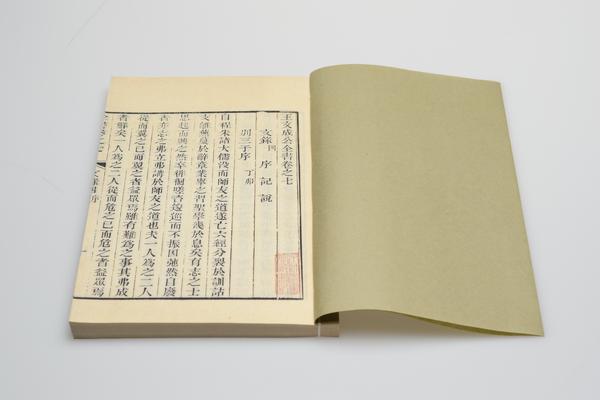 王文成公全書卷之七
文錄四 序 記 說
別三子序 丁卯
自程朱諸大儒沒而師友之道遂亡六經分裂於訓詁
支離蕪蔓於辭章業舉之習聖學幾於息矣有志之士
思起而興之然卒徘徊嗟咨逡巡而不振因弛然自廢
者亦志之弗立弗講於師友之道也夫一人爲之二人
從而翼之已而翼之者益眾焉雖有難爲之事其弗成
者鮮矣一人爲之二人從而危之已而危之者益眾焉